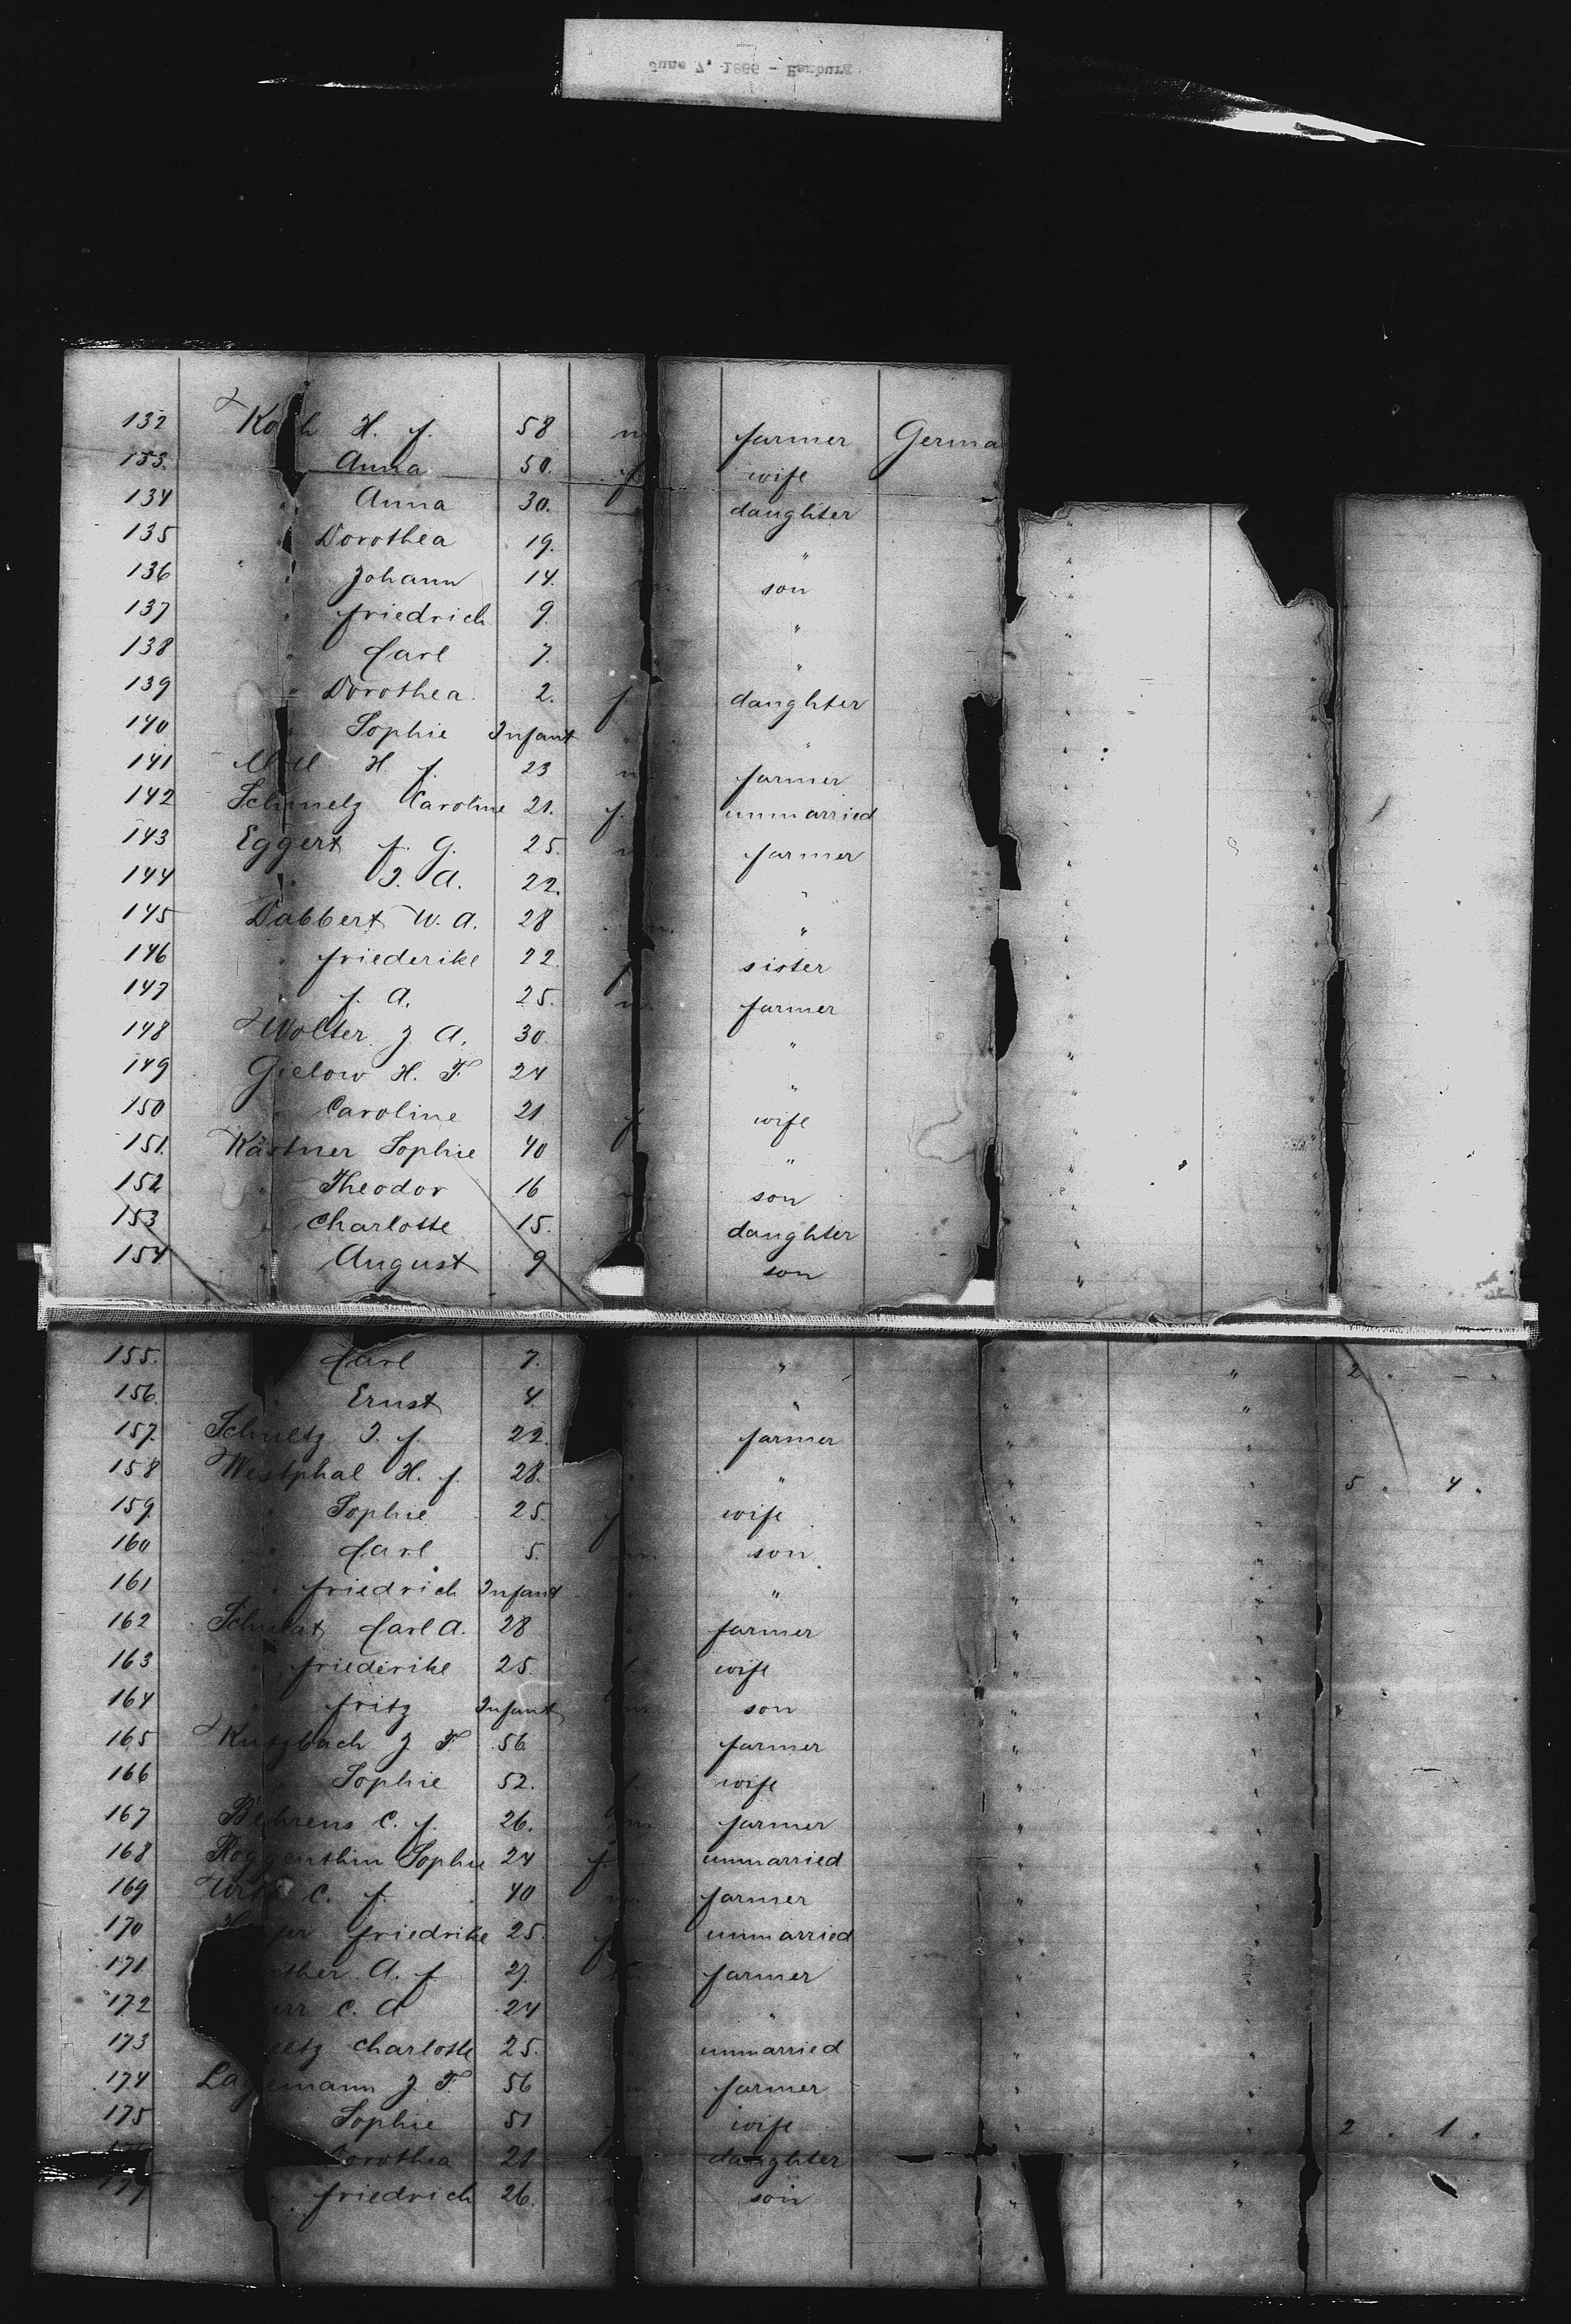 June 7, 1866 - Hamburg
132 Koch H. f. 58 m farmer Germa
133. Anna 50. f. wife
134 " Anna 30. " daughter
135 " Dorothea 19. "
136 " " Johann 14. m. son
137 " friedrich 9. "
138 " Carl 7. " "
139 " Dorothea 2. f daughter
140 " Sophie Infant " "
141 H. f. 23 m. farmer
142 Schmelz Caroline 21. f. unmarried
143 Eggert f. G. 25. m. farmer
144 " J. A. 22. "
145 Dabbert W. A. 28 m. "
146 " friederike 22. sister
147 " f. A. 25. m. farmer
148 Wolter J. A. 30 "
149 Gielow H. T. 24 "
150 " Caroline 21 f. wife
151. Kästner Sophie 40 "
152 " Theodor 16 son
153 " Charlotte 15. daughter
154 " August 9 son
155. Carl 7. " " " 2 " - "
156. " Ernst 4. " " " "
157. Schultz J. f. 22. farmer " "
158 Westphal H. f. 28. " " " " 5 " 4 "
159. " Sophie 25. f wife " "
160 " Carl 5. m. son " "
161 " friedrich Infant " " " "
162 Carl A. 28 " farmer " "
163 " friederike 25. f wife " "
164 " fritz Infant m son " "
165 Kutzbach J. T. 56. farmer " "
166 " Sophie 52. f wife " "
167 Behrens C. f. 26. m. farmer " "
168 Roggenthin Sophie 24 f. unmarried " "
169 C. f. 40 m. farmer " "
170 friedrike 25. f unmarried " "
171 ther A. f. 27. m. farmer " "
172 rr C. A 24 " " "
173 ltz Charlotte 25. " unmarried " "
174 Lagemann J. T. 56 m farmer " "
175 Sophie 51 wife " " 2 " 1 "
176 Dorothea 21 daughter " "
177. " friedrich 26. son " "